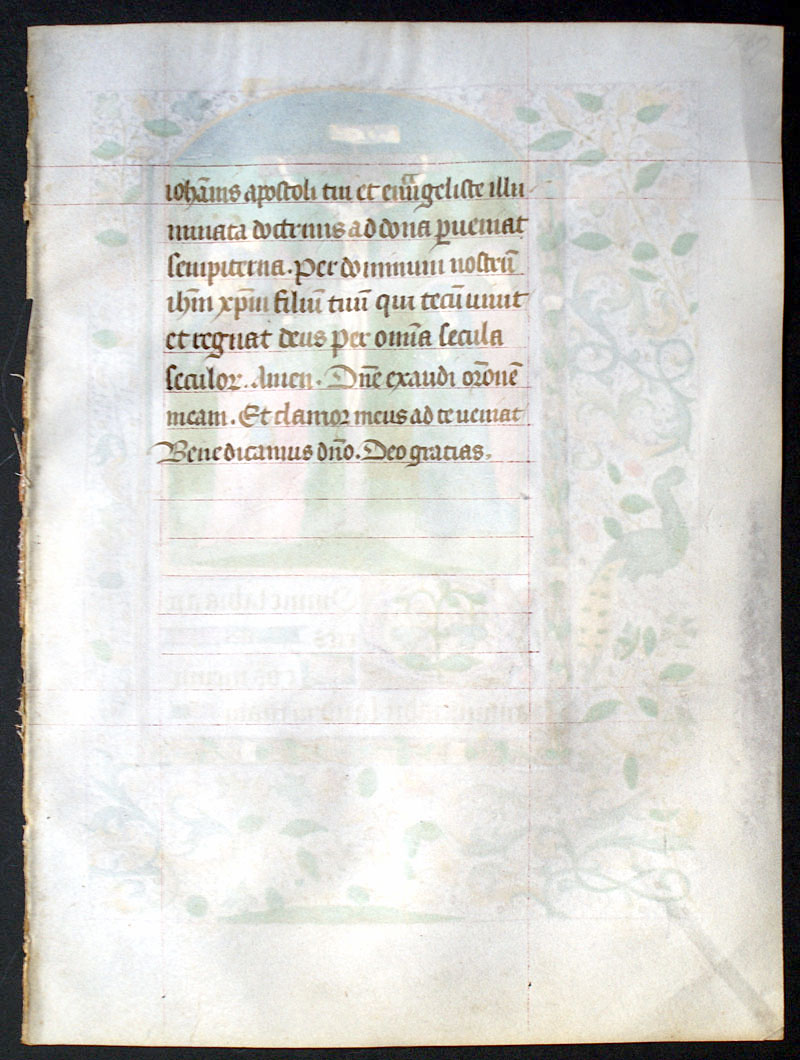 ioha͞nis apostoli tui et eua͞ngeliste illu
minata doctrinis ad dona ꝑueniat
sempiterna. Per dominum nostru͞
ih͞m xp͞m filiu͞ tuu͞ qui tecu͞ uiuit
et regnat deus per om͞ia secula
seculoꝝ. Amen. Dn͞e exaudi or͞one͞
meam. Et clamor meus ad te ueniat
Benedicamus dn͞o. Deo gracias.